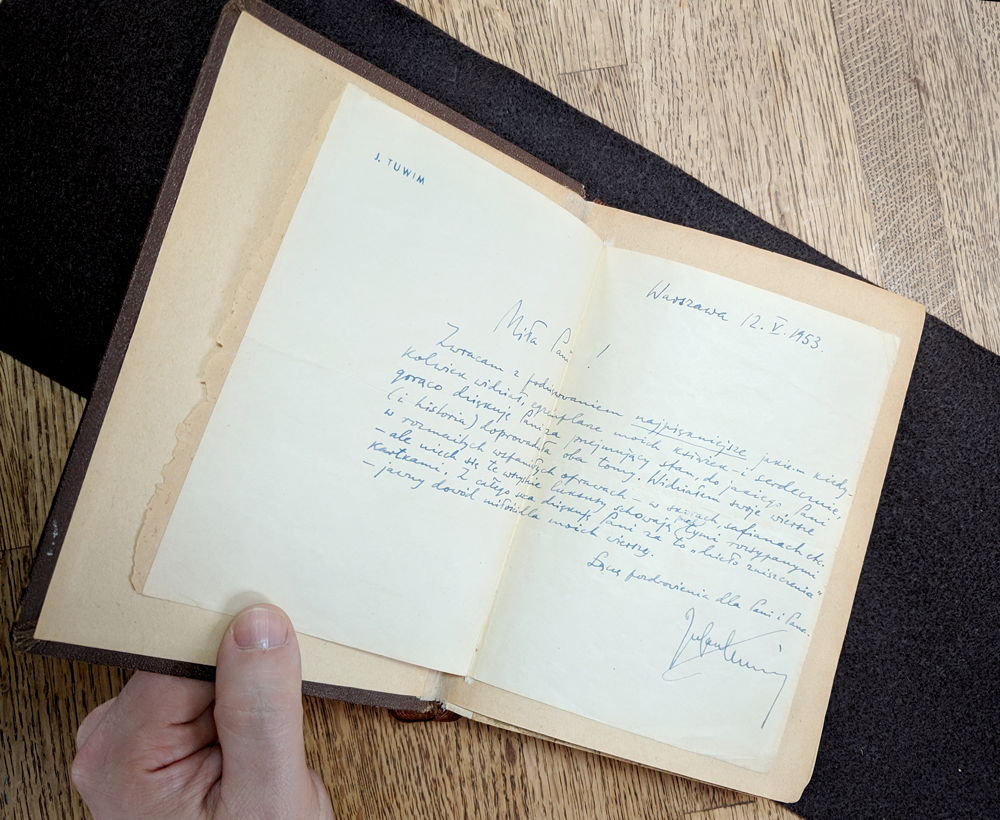 J. TUWIM
Warszawa 12.V.1953.
Miła Pani!
Zwracam z podziwowaniem najpiękniejsze jakiem kiedy-
kolwiek widział, egzemplarze moich książek – i serdecznie,
gorąco dziękuję Pani za przejmujący stan, do jakiego Pani
(i historia) doprowadziła oba tomy. Widziałem swoje wiersze
w rozmaitych wspaniałych oprawach – w skórach, safianach etc.
– ale niech się te wszystkie luksusy schowają tymi rozsypanymi
kartkami. Z całego serca dziękuję Pani za to „dzieło zniszczenia"
– jawny dowód miłości dla moich wierszy.
Łączę pozdrowienia dla Pani i Pana.
Julian Tuwim